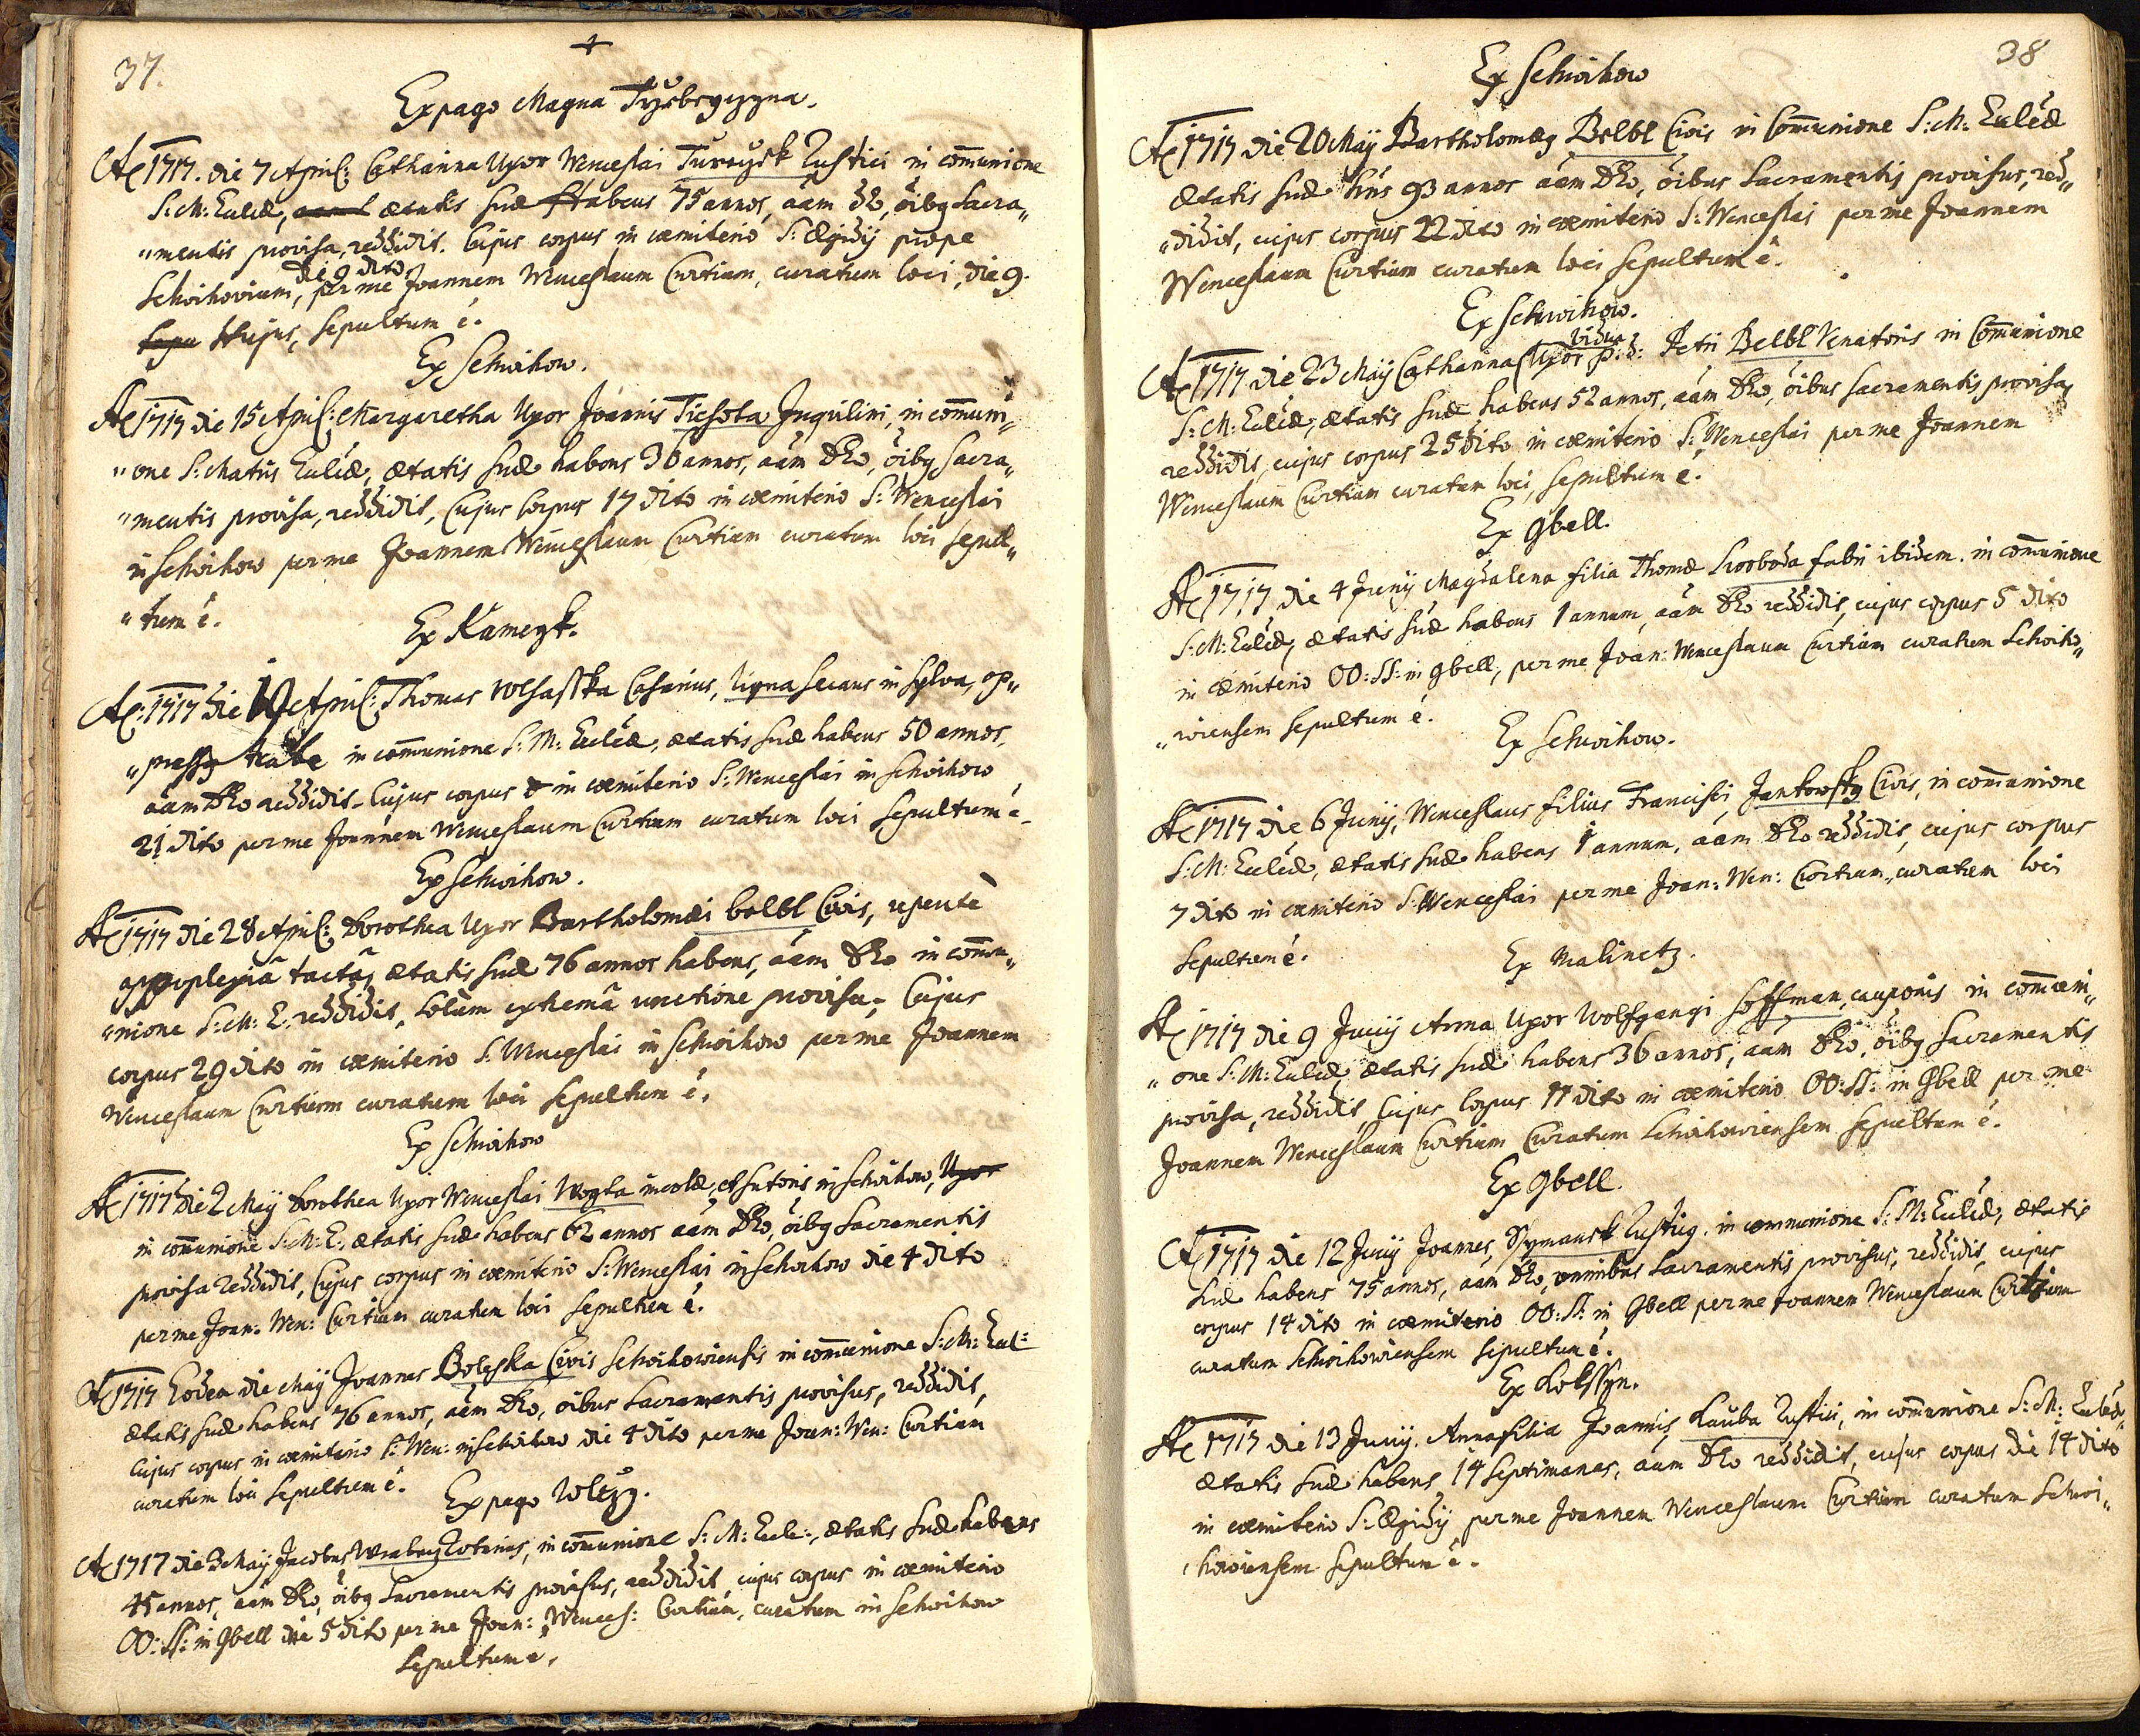 37.
+
Ex pago Magna
A͠o 1717. die 7 April: Catharina Uxor Wenceslai Turczik Rustici in com̄unione
S: M: Eccl͠æ, ætatis suæ Habens 75 annos, a͠am D͠eo, o͠ib9 Sacra„
„mentis provisa, reddidit. Cujus corpus in cœmiterio S: Ægidij prope
die 9 dito
Schwihovium, per me Joannem Wenceslaum Curtium, curatum loci, die 9.
Hujus, sepultum e͠.
Ex Schwihow.
A͠o 1717 die 15 April: Margaretha Uxor Joannis Tichota Inquilini, in com̄uni„
„one S: Matris Eccl͠æ, ætatis suæ habens 36 annos, a͠am D͠eo, o͠ib9 Sacra„
„mentis provisa, reddidit, Cujus Corpus 17 dito in cœmiterio S: Wenceslai
in Schwihow per me Joannem Wenceslaum Curtium curatum loci sepul„
„tum e͠.
Ex Kameyk.
A͠o: 1717 die 19 April: Thomas Wlsasska Casarius, ligna secans in sylva, op„
„press9 trabe in com̄unione S: M: Eccl͠æ, ætatis suæ habens 50 annos,
a͠am D͠eo reddidit. Cujus corpus in cœmiterio S: Wenceslai in Schwihow
21 dito per me Joannem Wenceslaum Curtium curatum loci sepultum e͠.
Ex Schwihow.
A͠o 1717 die 28 April: Dorothea Uxor Bartholomæi Belbl Civis, repentè
appoplexiâ tacta, ætatis suæ 76 annos habens, a͠am D͠eo in com̄u„
„nione S: M: E. reddidit, solùm extremâ unctione provisa. Cujus
corpus 29 dito in cœmiterio S. Wenceslai in Schwihow per me Joannem
Wenceslaum Curtium curatum loci sepultum e͠.
Ex Schwihow
A͠o 1717 die 2 Maij Dorothea Uxor Wenceslai Wogta incolæ, et sutoris in Schwihow, Uxor
in com̄unione S: M: E. ætatis suæ habens 62 annos a͠am D͠eo, o͠ib9 Sacramentis
provisa reddidit, Cujus corpus in cœmiterio S: Wenceslai in Schwihow die 4 dito
per me Joan: Wen: Curtium curatum loci sepultum e͠.
A͠o 1717 Eodem die Maij Joannes Boleska Civis Schwihowiensis in com̄unione S: M: Eccl:
ætatis suæ habens 76 annos, a͠am D͠eo, o͠ibus Sacramentis provisus, reddidit,
Cujus corpus in cœmiterio S: Wen: in Schwihow die 4 dito per me Joan: Wen: Curtium
curatum loci sepultum e͠.
Ex pago
A͠o 1717 die 3 Maij Jacobus Wrabecz in com̄unione S: M: Eccle:, ætatis suæ habens
45 annos, a͠am D͠eo, o͠ib9 Sacramentis provisus, reddidit, cujus corpus in cœmiterio
OO: SS: in Gbell die 5 dito per me Joan: Wences: Curtium, curatum in Schwihow
sepultum e͠.
38
Ex Schwihow
A͠o 1717 die 20 Maij Bartholomæ9 Belbl Civis in Com̄unione S: M: Eccl͠æ
ætatis suæ h͠ns 93 annos a͠am D͠eo, o͠ibus Sacramentis provisus, red„
„didit, cujus corpus 22 dito in cœmiterio S: Wenceslai per me Joannem
Wenceslaum Curtium curatum loci sepultum e͠.
Ex Schwihow.
vidua
A͠o 1717 die 23 Maij Catharina Uxor p: d: Petri Belbl Venatoris in Com̄unione
S: M: Eccl͠æ, ætatis suæ habens 52 annos, a͠am D͠eo, o͠ibus sacramentis provisa,
reddidit, cujus corpus 25 dito in cœmiterio S: Wenceslai per me Joannem
Wenceslaum Curtium curatum loci, sepultum e͠.
Ex Gbell.
A͠o 1717 die 4 Junij Magdalena filia Thomæ Swoboda fabri ibidem. in com̄unione
S: M: Eccl͠æ, ætatis suæ habens 1 annum, a͠am D͠eo reddidit, cujus corpus 5 dito
in cœmiterio OO: SS: in Gbell, per me Joan: Wenceslaum Curtium curatum Schwiho„
„wiensem sepultum e͠.
Ex Schwihow.
A͠o 1717 die 6 Junij, Wenceslaus filius Francisci Jankowsky Civis, in com̄unione
S: M: Eccl͠æ, ætatis suæ habens 1 annum, a͠am D͠eo reddidit, cujus corpus
7 dito in cœmiterio S: Wenceslai per me Joan: Wen: Curtium, curatum loci
sepultum e͠.
Ex Malinetz.
A͠o 1717 die 9 Junij Anna Uxor Wolfgangi Hoffman, cauponis in com̄uni„
„one S: M: Eccl͠æ, ætatis suæ habens 36 annos, a͠am D͠eo, o͠ib9 Sacramentis
provisa, reddidit, Cujus Corpus 11 dito in cœmiterio OO: SS: in Gbell per me
Joannem Wenceslaum Curtium Curatum Schwihowiensem sepultum e͠.
Ex Gbell.
A͠o 1717 die 12 Junij Joannes Symansk Rustic9, in communione S: M: Eccl͠æ, ætatis
suæ habens 75 annos, a͠am D͠eo, omnibus Sacramentis provisus, reddidit, cujus
corpus 14 dito in cœmiterio OO: SS: in Gbell per me Joannem Wenceslaum Curtium
curatum Schwihowiensem sepultum e͠.
Ex
A͠o 1717 die 13 Junij. Anna filia Joannis Lauba Rustici, in com̄unione S: M: Eccl͠æ,
ætatis suæ habens 14 septimanas, a͠am D͠eo reddidit, cujus corpus die 14 dito
in cœmiterio S: Ægidij per me Joannem Wenceslaum Curtium curatum Schwi„
howiensem sepultum e͠.